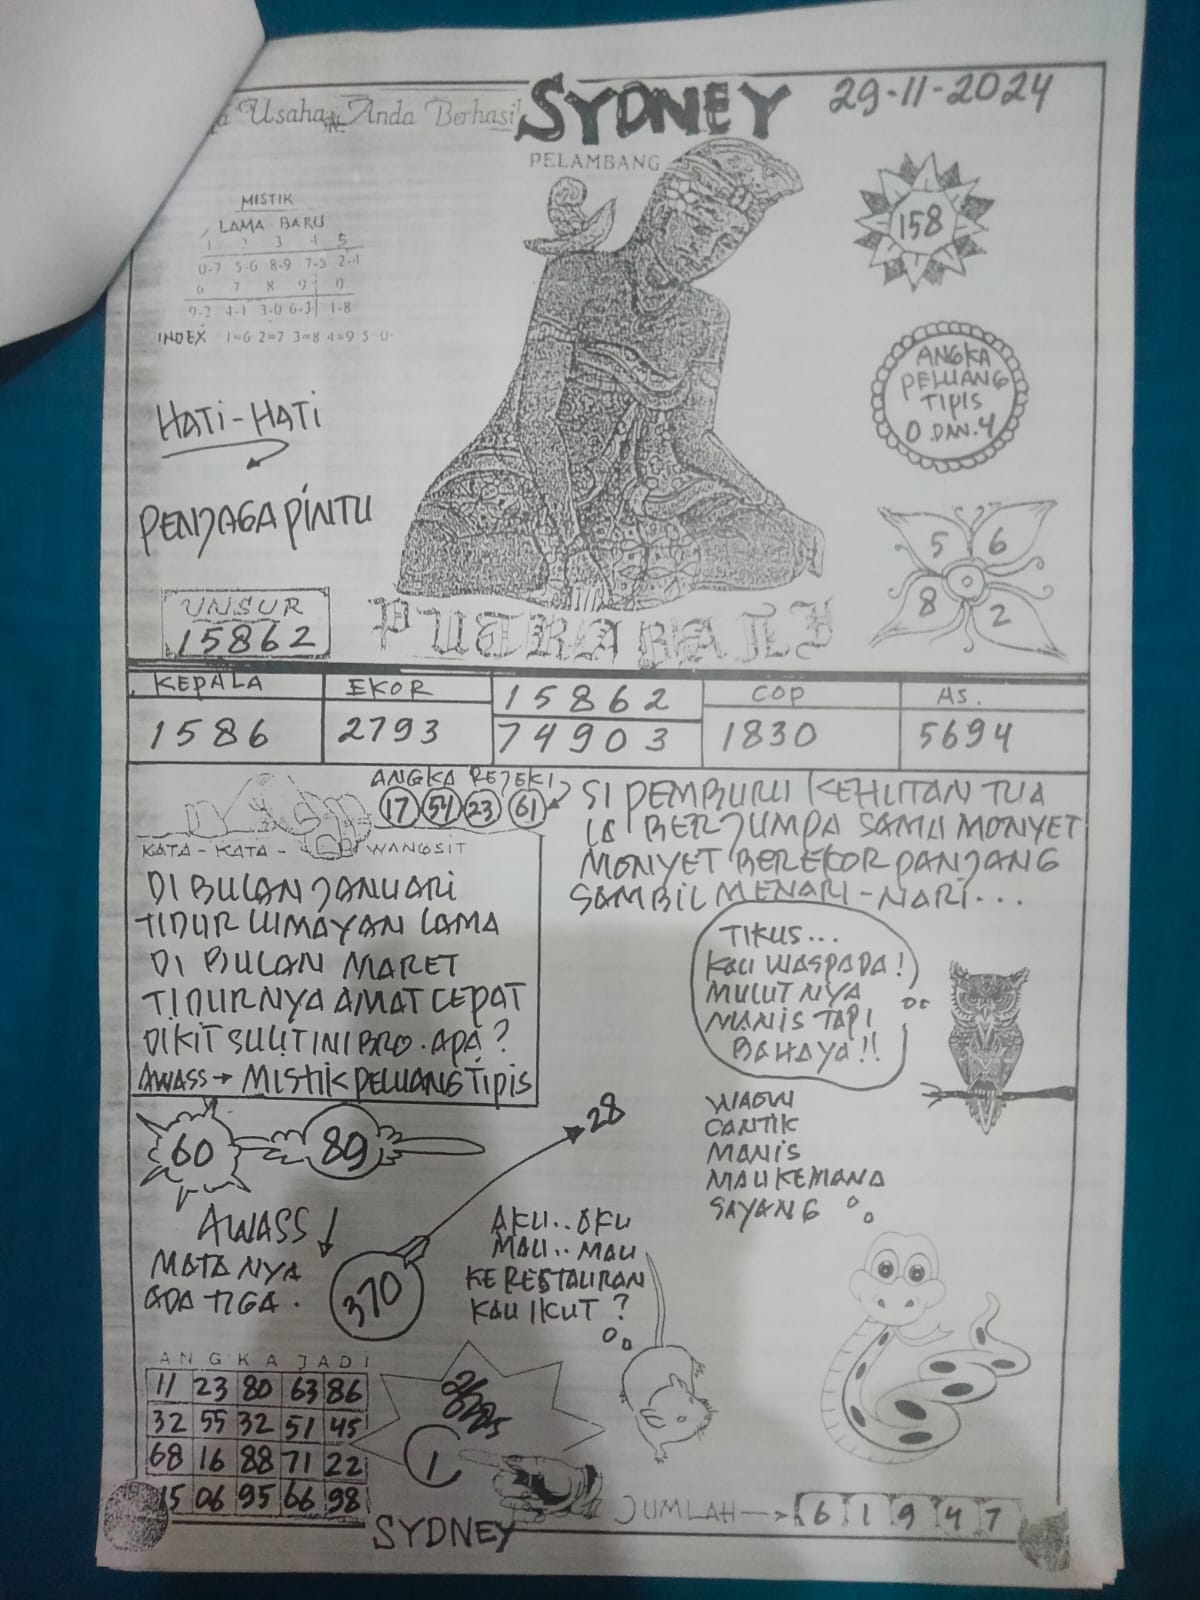 Usaha Anda Berhasil
SYDNEY
29-11-2024
PELAMBANG
MISTIK
LAMA BARU
1 2 3 4 5
0-7 5-6 8-9 7-5 2-4
6 7 8 9 0
9-2 4-1 3-0 6-3 1-8
INDEX 1=6 2=7 3=8 4=9 5 0
158
ANGKA
PELUANG
TIPIS
0 DAN 4
HATI-HATI
PENJAGA PINTU
5 6
8 2
UNSUR
15862
PUTRA BALI
KEPALA EKOR 15862 COP AS.
1586 2793 74903 1830 5694
ANGKA REJEKI
17 54 23 61
KATA-KATA-WANGSIT
DI BULAN JANUARI
TIDUR LUMAYAN LAMA
DI BULAN MARET
TIDURNYA AMAT CEPAT
DIKIT SULIT INI BRO. APA?
AWASS → MISTIK PELUANG TIPIS
SI PEMBURU KEHUTAN TUA
IA BERJUMPA SAMA MONYET
MONYET BEREKOR PANJANG
SAMBIL MENARI-NARI...
TIKUS...
KAU WASPADA!
MULUTNYA
MANIS TAPI
BAHAYA!!
WAOW
CANTIK
MANIS
MAU KEMANA
SAYANG
60 89
28
AWASS
MATANYA
ADA TIGA.
370
AKU.. AKU
MAU.. MAU
KE RESTAURAN
KAU IKUT?
ANGKA JADI
11 23 80 63 86
32 55 32 51 45
68 16 88 71 22
15 06 95 66 98
1
SYDNEY
JUMLAH → 6 1 9 4 7